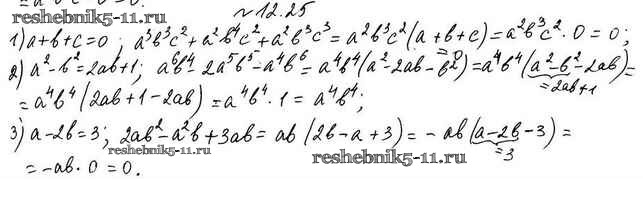 reshebnik5-11.ru
№12.25
1) a+b+c=0 ; a³b³c²+a²b⁴c²+a²b³c³=a²b³c²(a+b+c)=a²b³c²·0=0;
2) a²-b²=2ab+1; a⁶b⁴-2a⁵b⁵-a⁴b⁶=a⁴b⁴(a²-2ab-b²)=a⁴b⁴(a²-b²-2ab)=
=0
=2ab+1
=a⁴b⁴(2ab+1-2ab)=a⁴b⁴·1=a⁴b⁴;
3) a-2b=3; 2ab²-a²b+3ab=ab(2b-a+3)=-ab(a-2b-3)=
=3
reshebnik5-11.ru
reshebnik5-11.ru
=-ab·0=0.